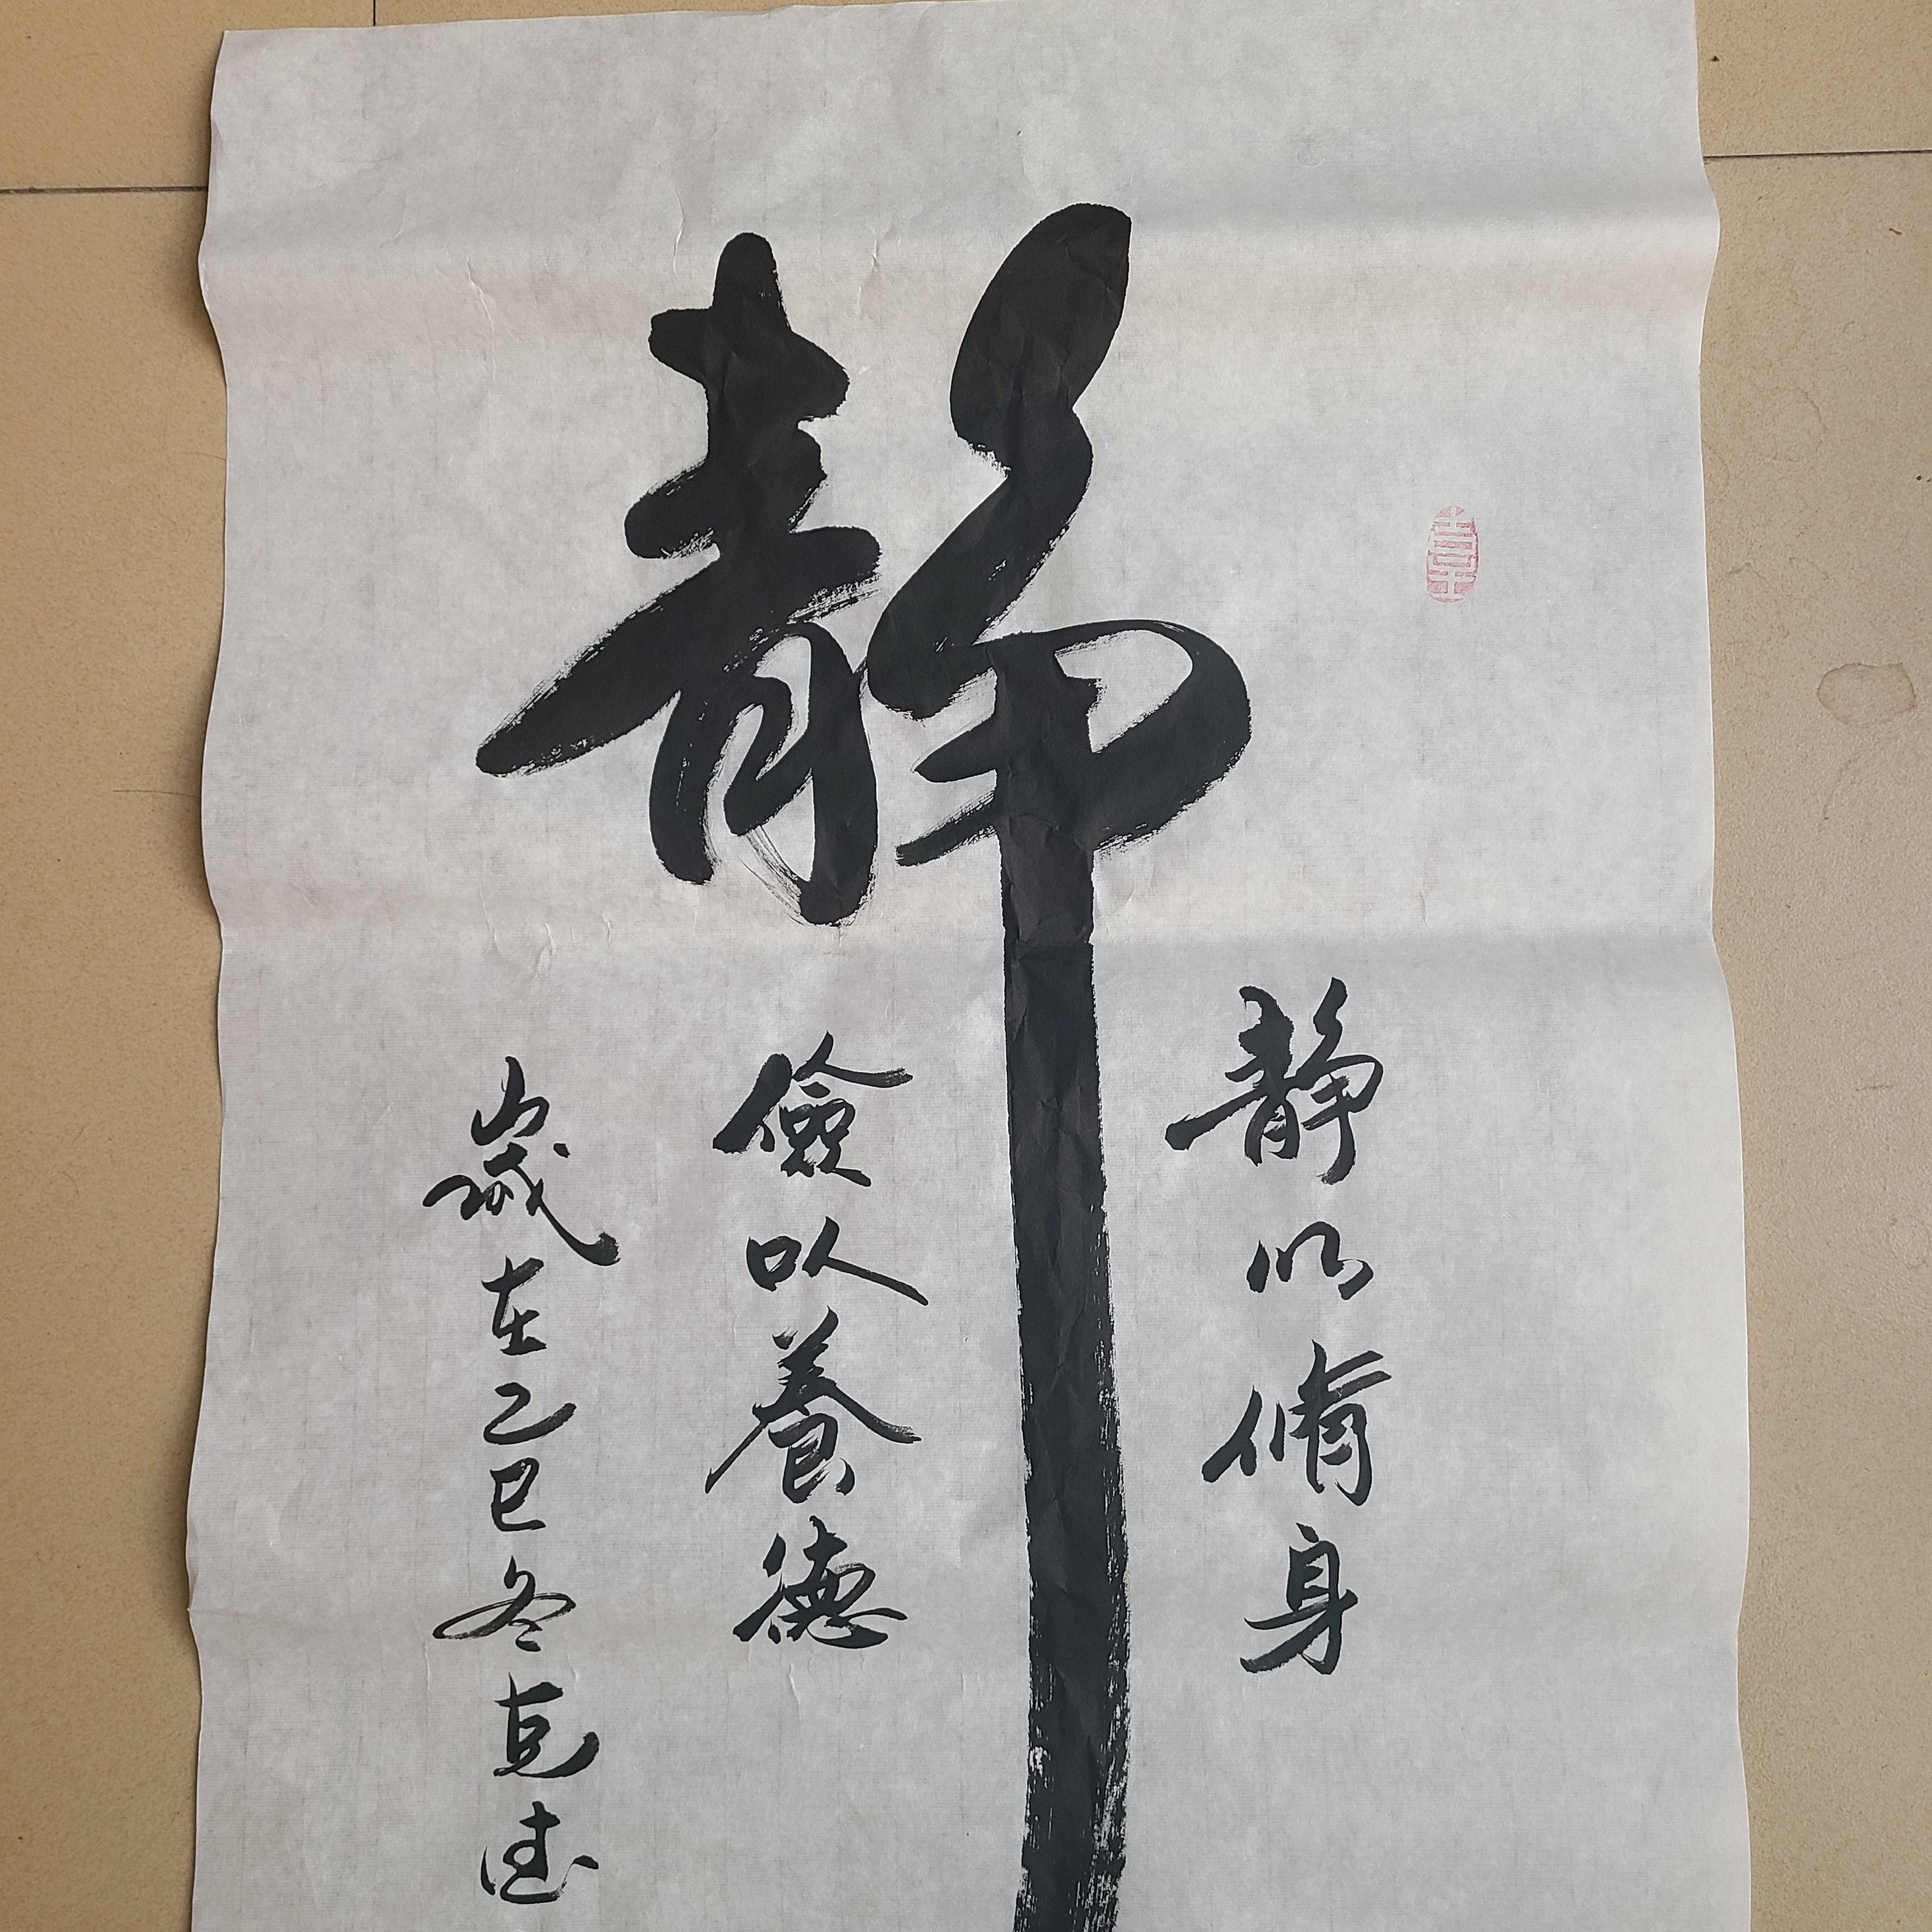 静
静以脩身
儉以養德
歲在乙巳冬克